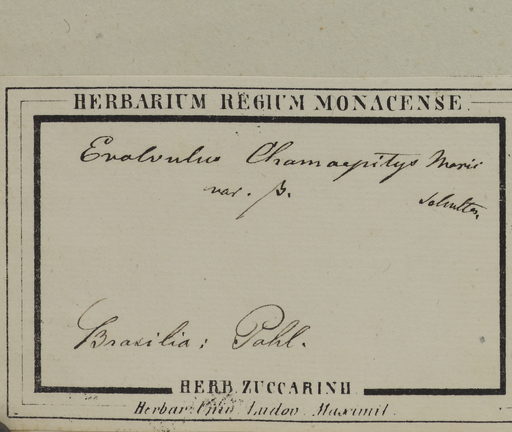 HERBARIUM REGIUM MONACENSE.
Evolvulus Chamaepitys Mart
var. β.
Brasilia: Pohl.
HERB. ZUCCARINII
Herbar. Univ. Ludov. Maximil.